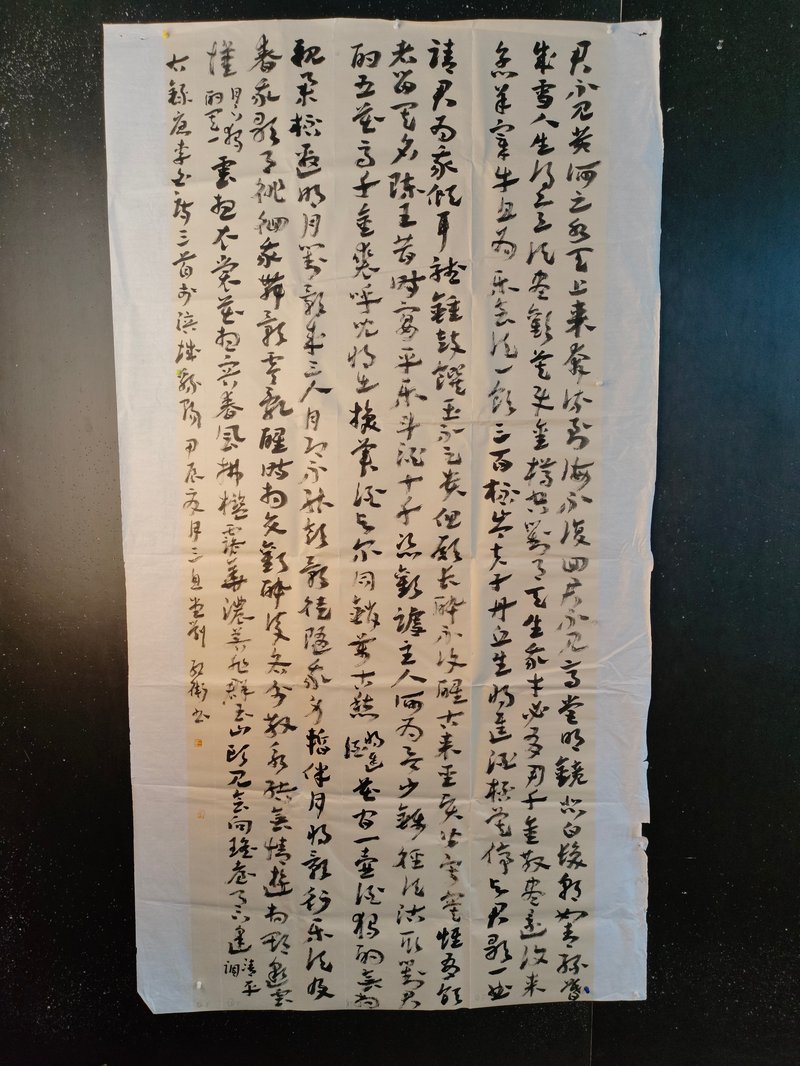 君不见黄河之水天上来奔流到海不復回君不见高堂明鏡悲白髮朝如青絲暮
成雪人生得意须盡歡莫使金樽空對月天生我才必有用千金散盡還復来
烹羊宰牛且为樂會须一飲三百杯岑夫子丹丘生将進酒杯莫停与君歌一曲
請君为我傾耳聽鐘鼓饌玉不足貴但願長醉不復醒古来聖賢皆寂寞惟有飲
者留其名陳王昔時宴平樂斗酒十千恣歡謔主人何为言少錢徑须沽取對君
酌五花馬千金裘呼兒将出換美酒与尔同銷萬古愁将進酒花间一壺酒獨酌無相
親舉杯邀明月對影成三人月既不解飲影徒隨我身暫伴月将影行樂须及
春我歌月徘徊我舞影零亂醒時相交歡醉後各分散永結無情遊相期邈雲
漢月下獨酌其一雲想衣裳花想容春風拂檻露華濃若非群玉山頭见會向瑤臺月下逢清平調
右錄唐李白詩三首於滨城甲辰夏月三且堂劉书